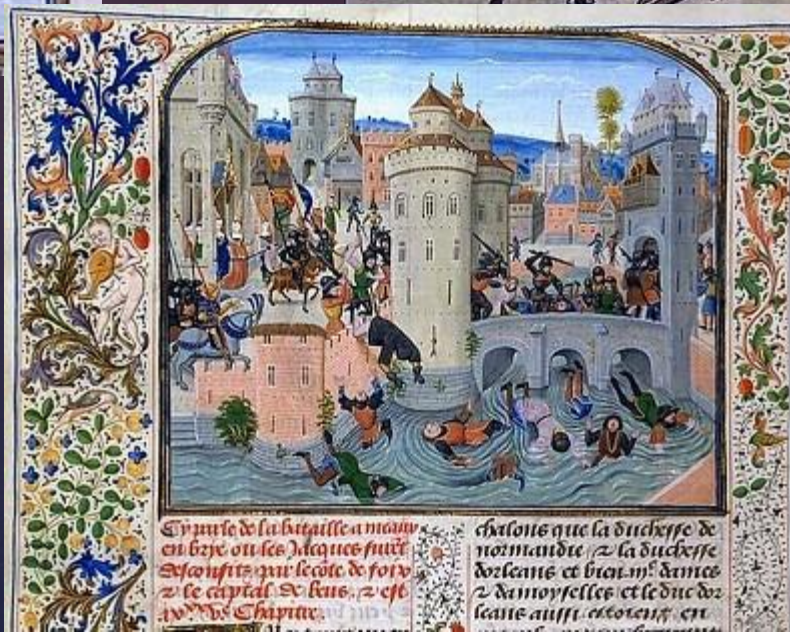 Cy parle de la bataille a meaulx
en brye ou les Jacques furēt
desconfits par le cōte de foix
⁊ le captal de beus. ⁊ est
Chapitre.
chalons que la duchesse de
normandie ⁊ la duchesse
dorleans et bien .iijᶜ. dames
⁊ damoyselles et le duc dor
leans aussi estoient en